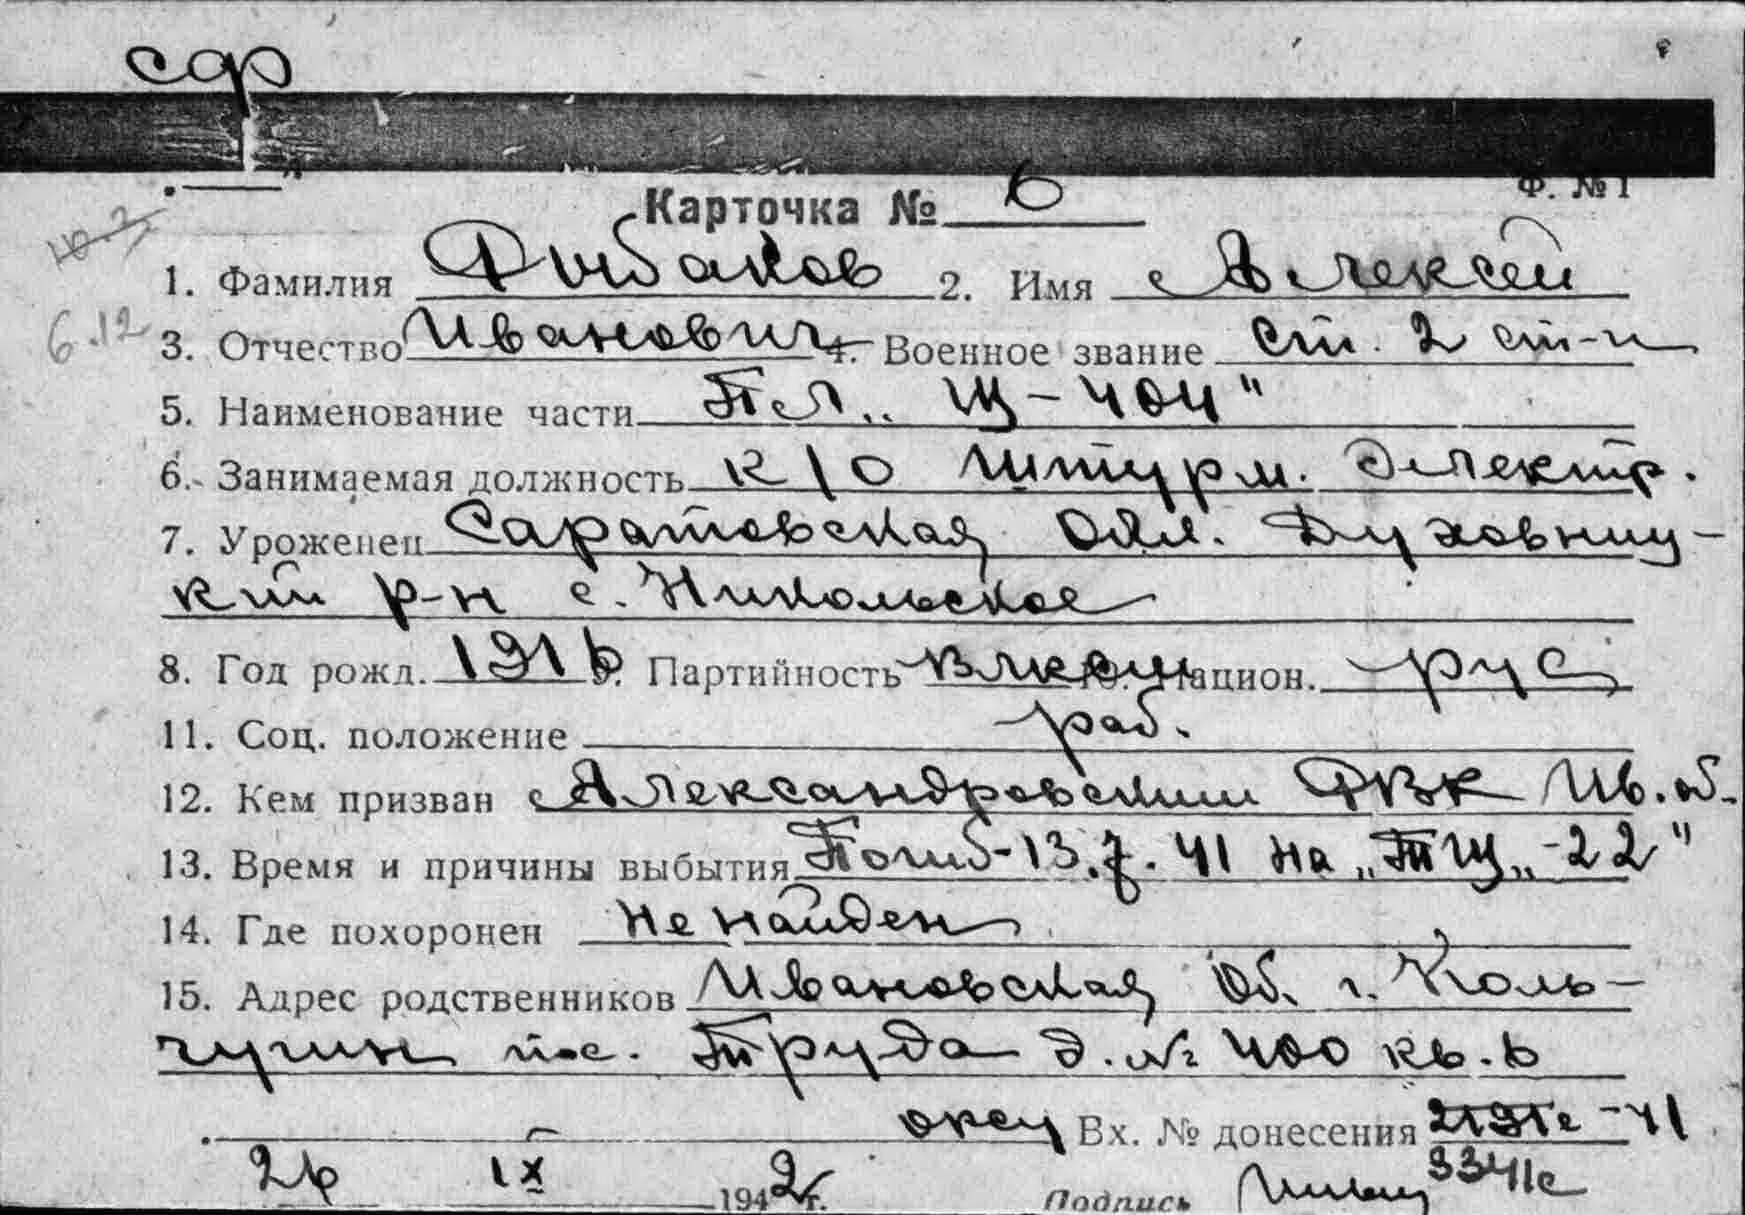 сф
Ф. № 1
Карточка № 6
10.2
6.12
1. Фамилия Рыбаков 2. Имя Алексей
3. Отчество Иванович 4. Военное звание Ст. 2 ст-и
5. Наименование части ПЛ „Щ-404"
6. Занимаемая должность к/о штурм. Электр.
7. Уроженец Саратовская Обл. Духовниц-
кий р-н с. Никольское
8. Год рожд. 1916 9. Партийность ВЛКСМ 10. Национ. рус
11. Соц. положение раб.
12. Кем призван Александровским РВК Ив. об.
13. Время и причины выбытия Погиб-13.7.41 на „ТЩ„-22"
14. Где похоронен не найден
15. Адрес родственников Ивановская Об. г. Коль-
чугин пос. Труда д. № 400 кв. 6
Вх. № донесения 2191с-41
3341с
26 IX 1942 г. Подпись